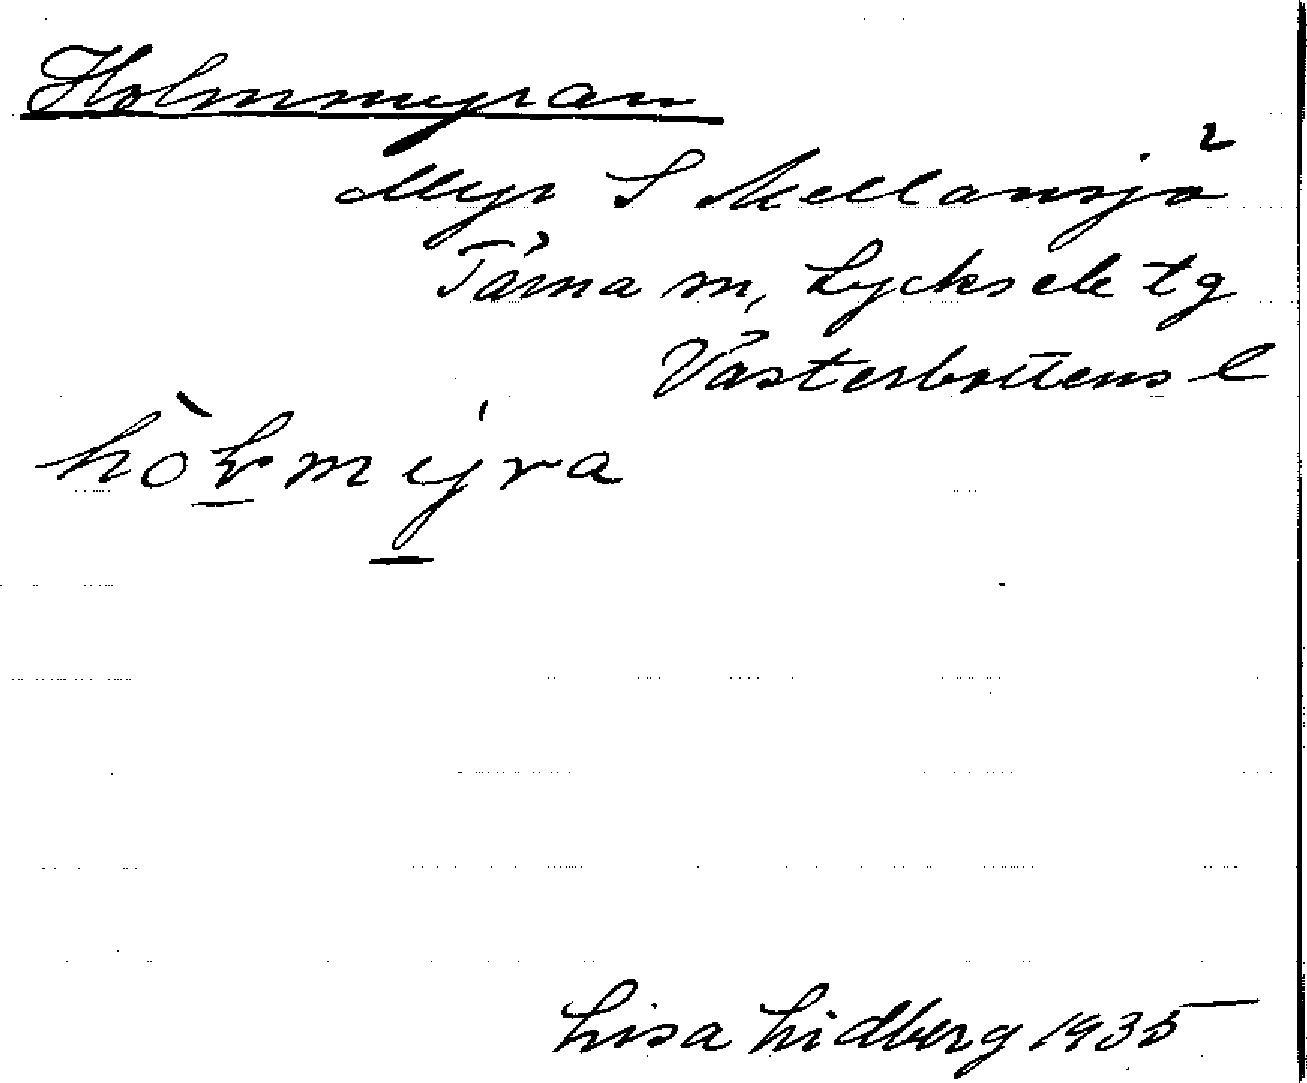 Holmmyran
Myr S Mellansjö
Tärna sn, Lycksele tg
Västerbottens l
hòl̠mýra
Lisa Lidberg 1935